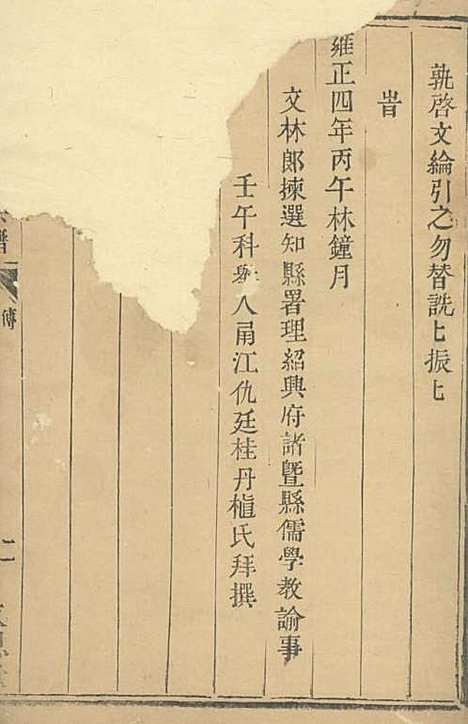 孰啓文綸引之勿替詵匕振匕
旹
雍正四年丙午林鐘月
文林郎揀選知縣署理紹興府諸暨縣儒學教諭事
壬午科舉人甬江仇廷桂丹植氏拜撰
譜
傳
二